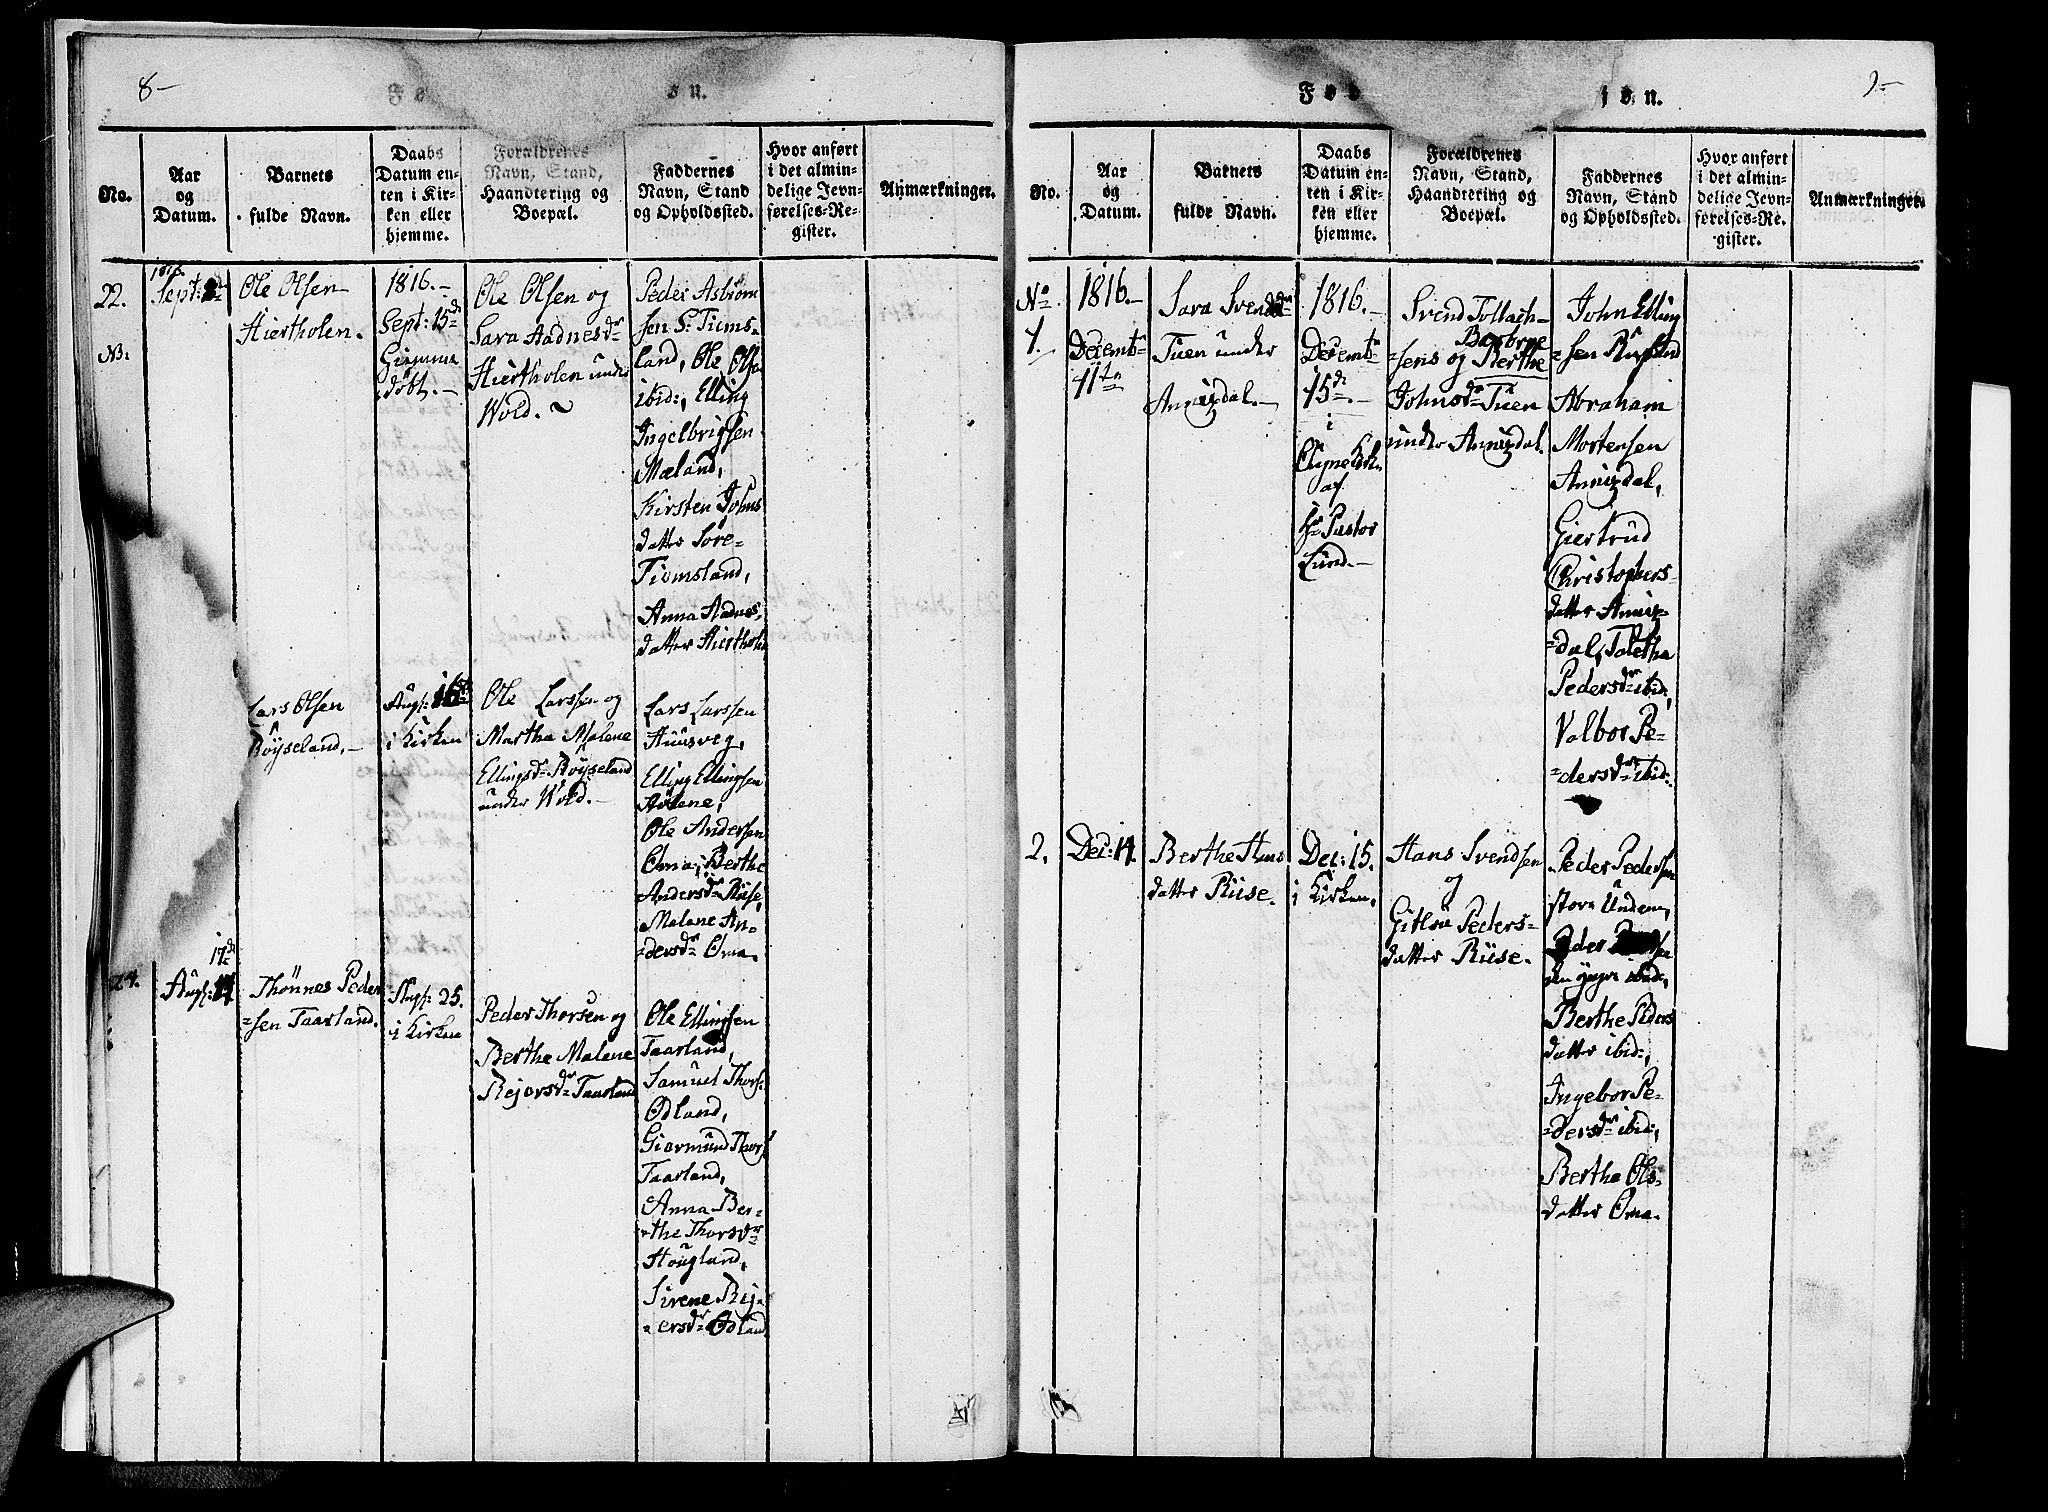 8-
F
on.
No.
Aar
og
Datum.
Barnets
fulde Navn.
Daabs
Datum en-
ten i Kir-
ken eller
hjemme.
Forældrenes
Navn, Stand,
Haandtering og
Boepæl.
Faddernes
Navn, Stand
og Opholdssted.
Hvor anført
i det almin-
delige Jevn-
førelses-Re-
gister.
Anmærkninger.
22.
1816.
Sept:
Ole Olsen
Hiertholen.
1816.-
Sept: 15de
Giemme
døbt.-
Ole Olsen og
Sara Aadnesdr
Hiertholen under
Wold.
Peder Asbiøm
sen S: Tiems-
land, Ole Olse
ibid:, Elling
Ingelbrigsen
Mæland,
Kirsten Johns
datter Søre-
Tiemsland,
Anna Aadnes-
datter Hierthole
Lars Olsen
Røyseland.-
Aug: 16de
i Kirken
Ole Larssen og
Martha Malene
Ellingsdr Røyseland
under Wold.-
Lars Larssen
Huusveg,
Elling Ellingsen
Ole Andersen
Oma, Berthe
Andersdr Riise,
Malane An-
=dersdr Oma.
24.
17de
Aug:
Thønnes Peder
=sen Taarland.
Aug: 25.
i Kirken
Peder Thorsen og
Berthe Malene
Rejersdr Taarland
Ole Ellingsen
Taarland,
Samuel Thors
Ødland,
Giermund Thors
Taarland,
Anna Ber-
=the Thorsdr
Hougland,
Sirene Rej-
=ersdr Ødland
9-
F ø d
i o n.
No.
Aar
og
Datum.
Barnets
fulde Navn.
Daabs
Datum en-
ten i Kir-
ken eller
hjemme.
Forældrenes
Navn, Stand,
Haandtering og
Boepæl.
Faddernes
Navn, Stand
og Opholdssted.
Hvor anført
i det almin-
delige Jevn-
førelses-Re-
gister.
Anmærkninger.
No
1
1816.-
Decembr
11te
Sara Svendsdr
Tuen under
Anniqdal.-
1816.-
Decembr
15de.-
i
af
Hr Pastor
Lund.-
Svend Tollach-
=sens og Berthe
Johnsdr Tuen
under Anniqdal.
John Elling
=sen
Abraham
Mortensen
Anniqdal,
Giertrud
Christophers-
datter Anniq-
=dal, Taletha
Pedersdr ibid:,
Valbor Pe-
=dersdr ibid:
2.
Dec: 11.
Berthe Hans
datter Riise.
Dec: 15.
i Kirken.
Hans Svendsen
og
Gitlou Peders-
datter Riise.
Peder Pedersen
store Undem,
Peder
den yngre ibid:,
Berthe Peders
datter ibid:,
Ingebor Pe-
=dersdr ibid:,
Berthe Ols-
datter Oma.